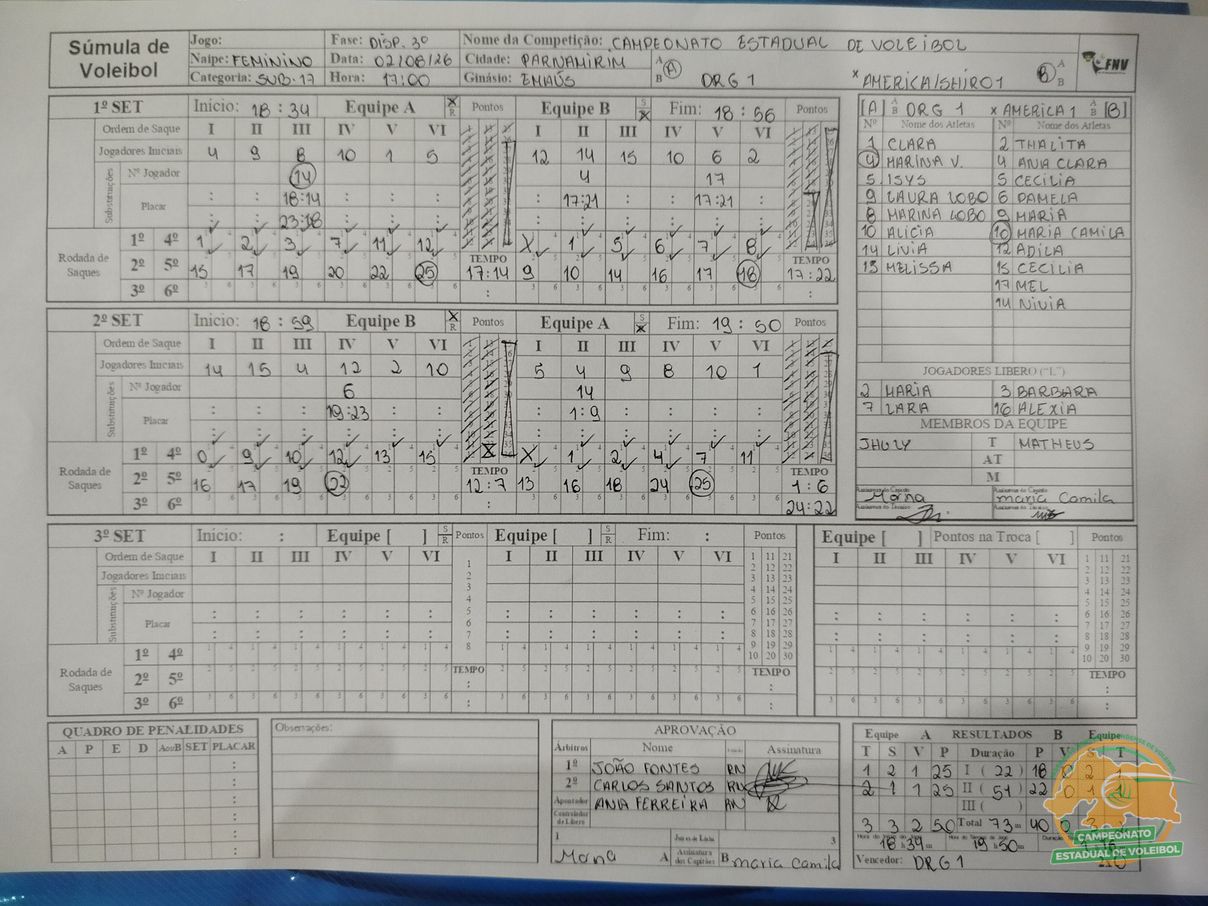 Súmula de Voleibol
Jogo:
Naipe: FEMININO
Categoria: SUB-17
Fase: DISP. 3º
Data: 02/08/26
Hora: 17:00
Nome da Competição: CAMPEONATO ESTADUAL DE VOLEIBOL
Cidade: PARNAMIRIM
Ginásio: EMAÚS
A B (A) DRG 1 x AMERICA/SHIRO1 (B) A B
FNV
1º SET Início: 18:34 Equipe A X R Pontos Equipe B S X Fim: 18:56 Pontos
Ordem de Saque I II III IV V VI I II III IV V VI
Jogadores Iniciais 4 9 8 10 1 5 12 14 15 10 6 2
Substituições Nº Jogador 14 4 17
Placar 18:14 17:21 17:21
23:18
Rodada de Saques
1º 4º 1 2 3 7 11 12 X 1 5 6 7 8
TEMPO TEMPO
2º 5º 15 17 19 20 22 25 17:14 9 10 14 16 17 18 17:22
3º 6º
2º SET Início: 18:59 Equipe B X R Pontos Equipe A S X Fim: 19:50 Pontos
Ordem de Saque I II III IV V VI I II III IV V VI
Jogadores Iniciais 14 15 4 12 2 10 5 4 9 8 10 1
Substituições Nº Jogador 6 14
Placar 19:23 1:9
Rodada de Saques
1º 4º 0 9 10 12 13 15 X 1 2 4 7 11
TEMPO TEMPO
2º 5º 16 17 19 22 12:7 13 16 18 24 25 1:6
3º 6º 24:22
[A] A B DRG 1 x AMERICA 1 A B [B]
Nº Nome dos Atletas Nº Nome dos Atletas
1 CLARA 2 THALITA
4 MARINA V. 4 ANA CLARA
5 ISYS 5 CECILIA
9 LAURA LOBO 6 PAMELA
8 MARINA LOBO 9 MARIA
10 ALICIA 10 MARIA CAMILA
14 LIVIA 12 ADILA
13 MELISSA 15 CECILIA
17 MEL
14 NIVIA
JOGADORES LIBERO ("L")
2 MARIA 3 BARBARA
7 LARA 16 ALEXIA
MEMBROS DA EQUIPE
JHULY T MATHEUS
AT
M
Assinatura do Capitão Assinatura do Capitão
maria Camila
Assinatura do Técnico Assinatura do Técnico
3º SET Início: : Equipe [ ] S R Pontos Equipe [ ] S R Fim: : Pontos Equipe [ ] Pontos na Troca [ ] Pontos
Ordem de Saque I II III IV V VI I II III IV V VI I II III IV V VI
Jogadores Iniciais
Substituições Nº Jogador
Placar
Rodada de Saques
1º 4º
2º 5º TEMPO TEMPO TEMPO
3º 6º
QUADRO DE PENALIDADES
A P E D AouB SET PLACAR
Observações:
APROVAÇÃO
Árbitros Nome Assinatura
1º JOÃO FONTES RN
2º CARLOS SANTOS RN
Apontador ANA FERREIRA RN
Controlador de Líbero
1 Juízes de Linha 3
A Assinatura dos Capitães B maria Camila
Equipe A RESULTADOS B Equipe
T S V P Duração P V S T
1 2 1 25 I (22) 18 0 2 1
2 1 1 25 II 51 22 0 1 1
III ( )
3 3 2 50 Total 73m 40 0 3
18h34m 19h50m
Vencedor: DRG 1
CAMPEONATO
ESTADUAL DE VOLEIBOL